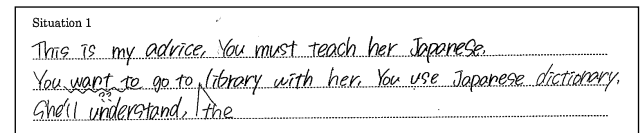 Situation 1
This is my advice. You must teach her Japanese.
You want to go to library with her. You use Japanese dictionary.
??
She'll understand. the